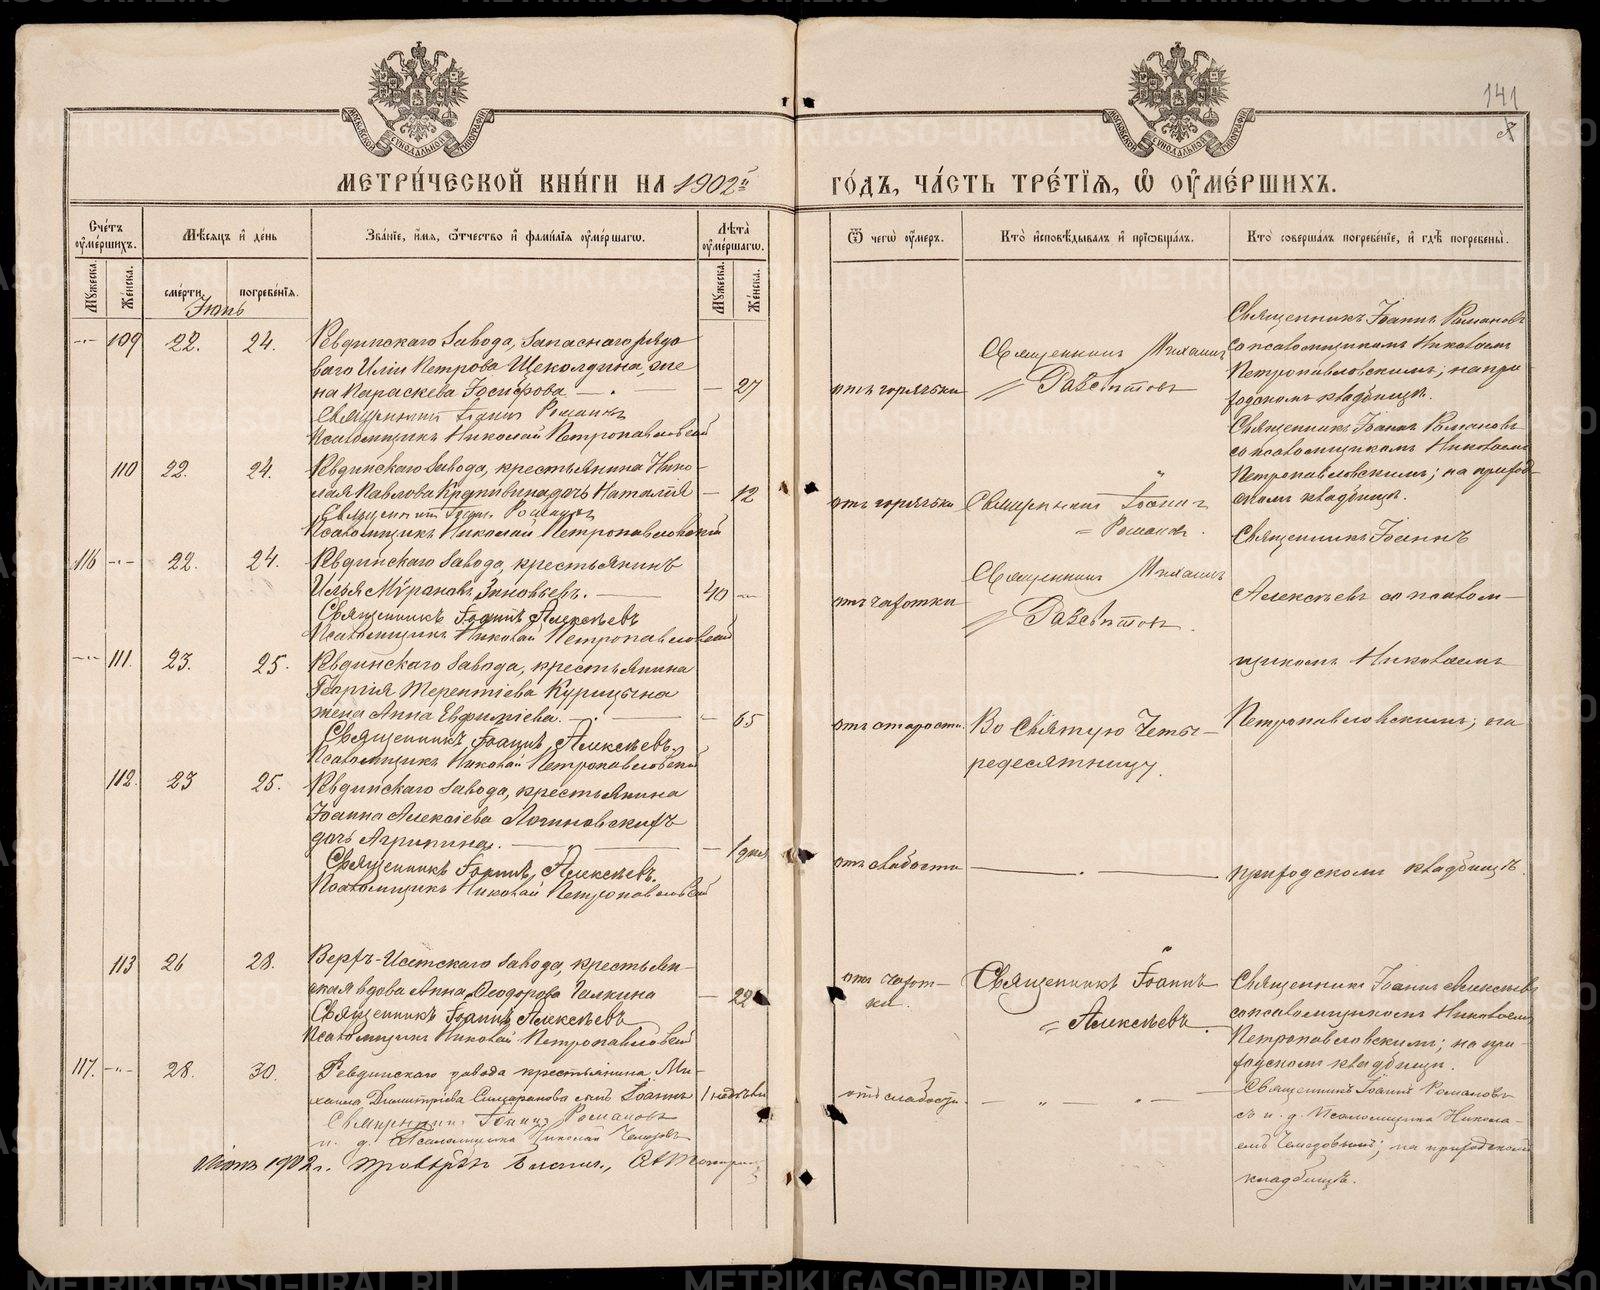 141
МЕТРИ́ЧЕСКОЙ КНИ́ГИ НА 1902й
ГО́ДЪ, ЧА́СТЬ ТРЕ́ТЇѦ, Ѡ҆ ОУ҆МЕ́РШИХЪ.
МОСКОВСКОЙ СѴНОДАЛЬНОЙ ТИПОГРАФІИ
МОСКОВСКОЙ СѴНОДАЛЬНОЙ ТИПОГРАФІИ
Сче́тъ оу҆ме́ршихъ.
Мѣ́сѧцъ и҆ де́нь
Зва́нїе, и҆́мѧ, ѻ҆́тчество и҆ фами́лїѧ оу҆ме́ршагѡ.
Лѣ̀та оу҆ме́ршагѡ.
Ѿ чегѡ̀ оу҆́меръ.
Кто̀ и҆сповѣ́дывалъ и҆ прїѡбща́лъ.
Кто̀ соверша́лъ погребе́нїе, и҆ гдѣ̀ погребены̀.
Мꙋ́жеска.
Же́нска.
сме́рти.
погребе́нїѧ.
Мꙋ́жеска.
Же́нска.
Іюнь
109 22. 24. Ревдинскаго Завода, запаснаго рядо
ваго Иліи Петрова Щеколдина, же
на Параскева Іосифова — 27
Священникъ Іоаннъ Романовъ
Псаломщикъ Николай Петропавловскій
отъ горячки
Священникъ Михаилъ
Священникъ Іоаннъ Романовъ
съ псаломщикомъ Николаемъ
Петропавловскимъ; на при
ходскомъ кладбищѣ.
110 22. 24. Ревдинскаго Завода, крестьянина Нико-
лая Павлова Крапивина дочь Наталія — 12
Священникъ Іоаннъ Романовъ
Псаломщикъ Николай Петропавловскій
отъ горячки
Священникъ Іоаннъ
= Романовъ.
Священникъ Іоаннъ Романовъ
съ псаломщикомъ Николаемъ
Петропавловскимъ; на приход-
скомъ кладбищѣ.
116 22. 24. Ревдинскаго Завода, крестьянинъ
Илья Зиновьевъ. — 40
Священникъ Іоаннъ Алексѣевъ
Псаломщикъ Николай Петропавловскій
отъ чахотки
Священникъ Михаилъ
Священникъ Іоаннъ
Алексѣевъ съ псалом-
щикомъ Николаемъ
Петропавловскимъ; на
приходскомъ кладбищѣ.
111. 23. 25. Ревдинскаго Завода, крестьянина
Георгія Терентіева Курицына
жена Анна Евфиміева. — 65
Священникъ Іоаннъ Алексѣевъ.
Псаломщикъ Николай Петропавловскій
отъ старости.
Во Святую Четы-
редесятницу.
112. 23 25. Ревдинскаго Завода, крестьянина
Іоанна Алексіева Логиновскихъ
дочь Агрипина. — 1 дня
Священникъ Іоаннъ Алексѣевъ.
Псаломщикъ Николай Петропавловскій
отъ слабости
113 26 28. Верхъ-Исетскаго Завода, крестьян-
ская вдова Анна Ѳеодорова Галкина — 22
Священникъ Іоаннъ Алексѣевъ
Псаломщикъ Николай Петропавловскій
отъ чахот-
ки.
Священникъ Іоаннъ
= Алексѣевъ.
Священникъ Іоаннъ Алексѣевъ
съ псаломщикомъ Николаемъ
Петропавловскимъ; на при-
ходскомъ кладбищѣ.
117. 28. 30. Ревдинскаго завода крестьянина Ми-
хаила Димитріева сынъ Іоаннъ 1 недѣли
Священникъ Іоаннъ Романовъ
и. д. Псаломщика Николай
отъ слабости.
Священникъ Іоаннъ Романовъ
съ и. д. Псаломщика Никола-
емъ на приходскомъ
кладбищѣ.
1902 г.